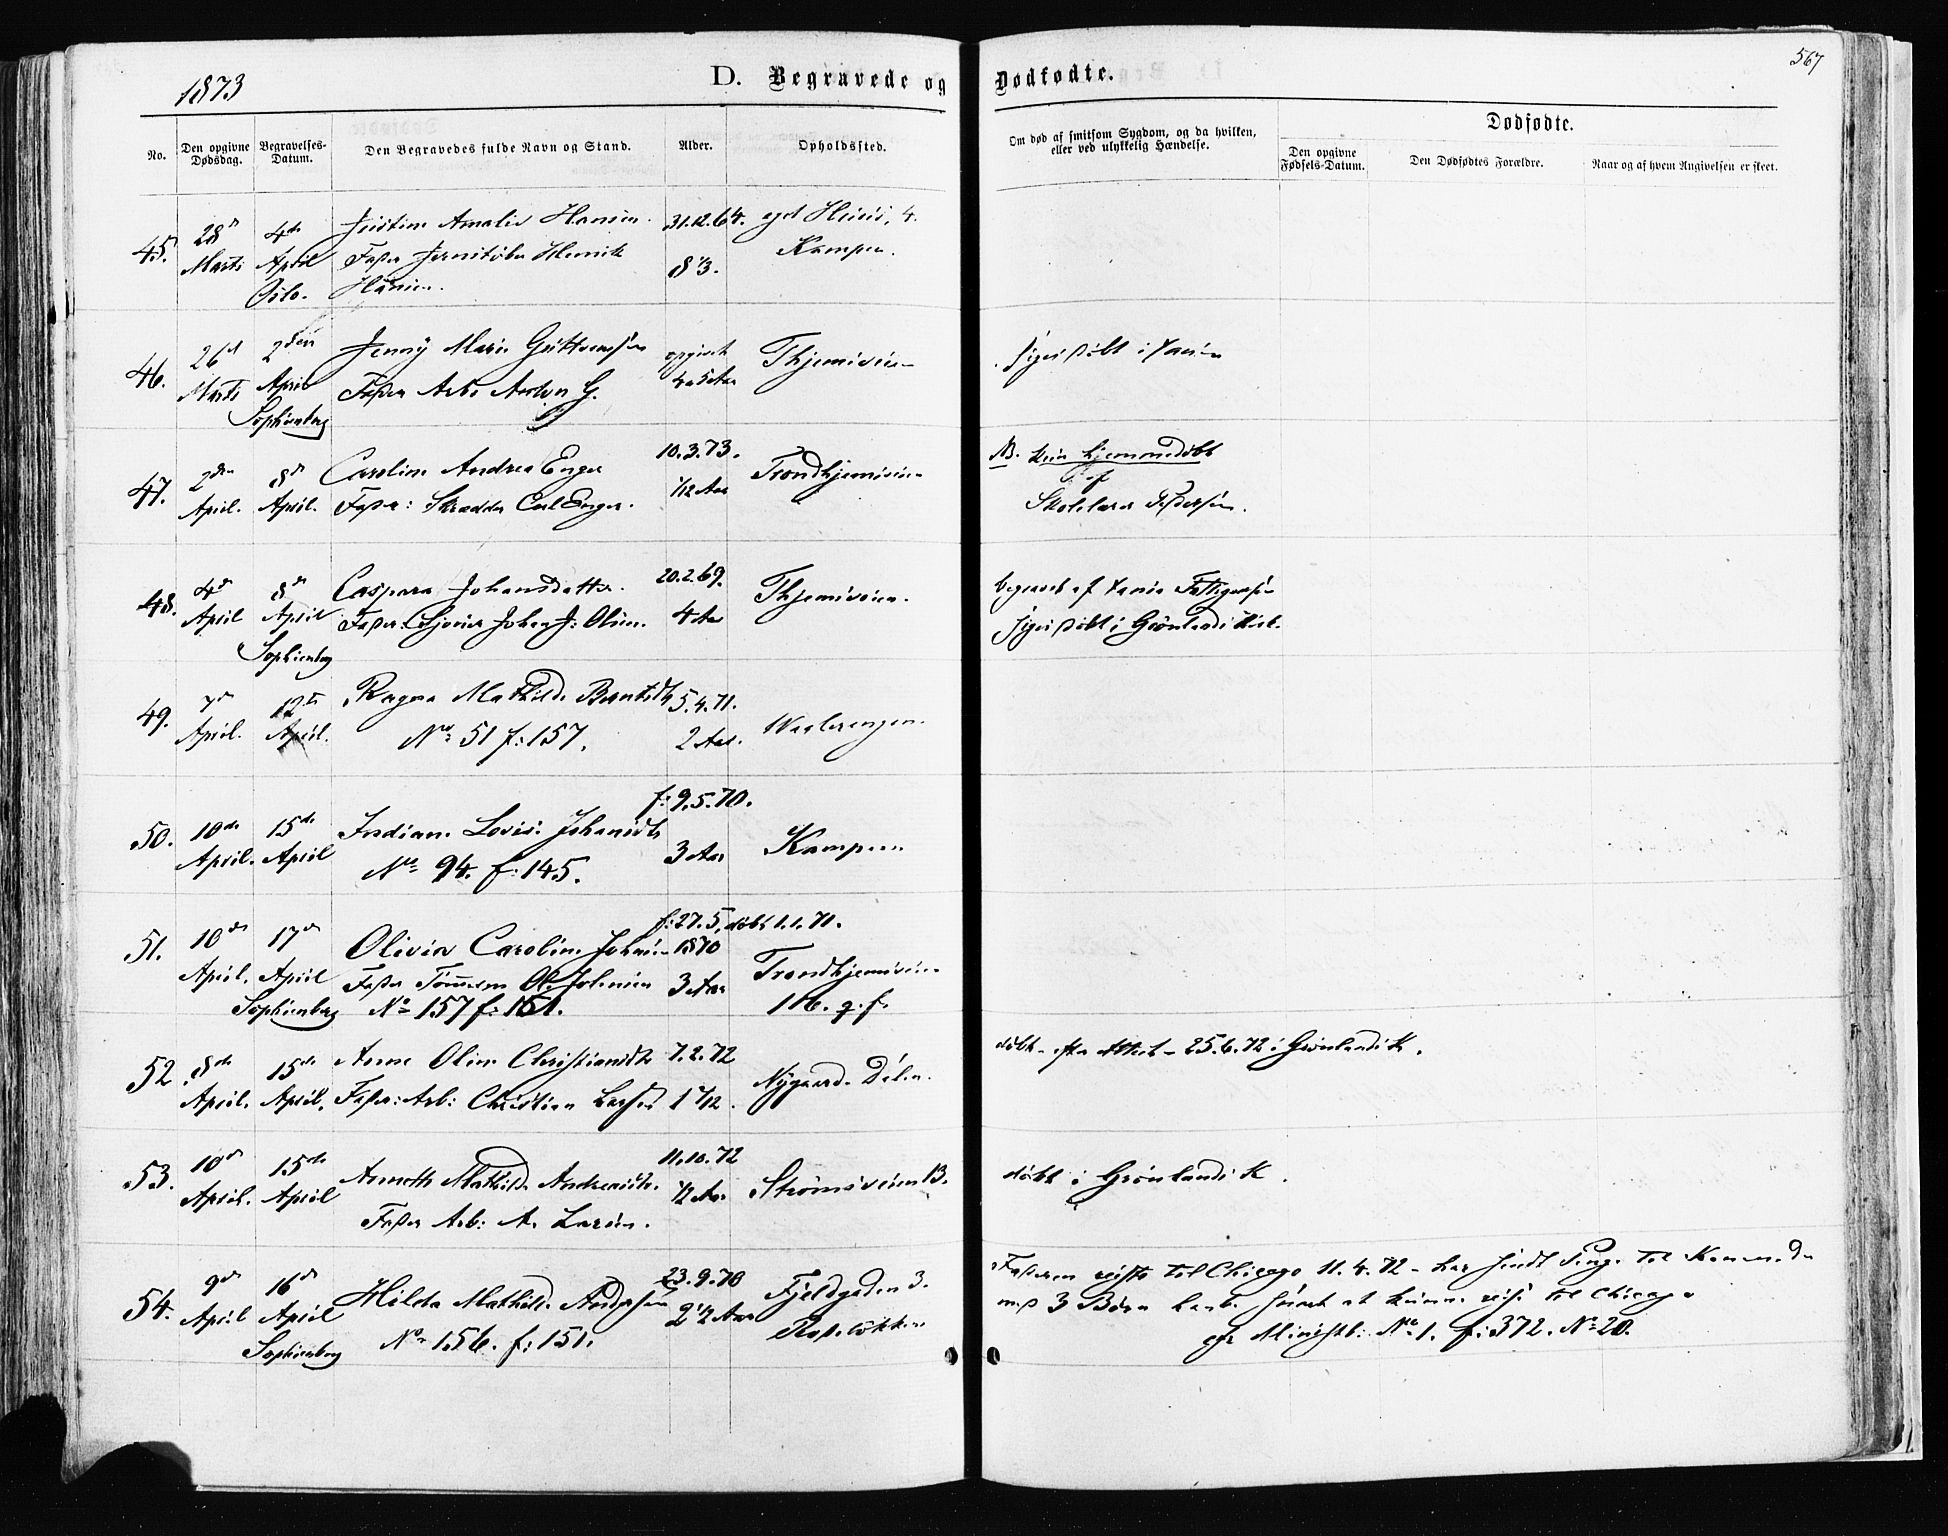 1873
D. Begravede og Dødfødte.
567
No.
Den opgivne Dødsdag.
Begravelses-Datum.
Den Begravedes fulde Navn og Stand.
Alder.
Opholdssted.
Om død af smitsom Sygdom, og da hvilken, eller ved ulykkelig Hændelse.
Dødfødte.
Den opgivne Fødsels-Datum.
Den Dødfødtes Forældre.
Naar og af hvem Angivelsen er skeet.
45. 28 4de Amalie Hansen. 31.12.64.
Marts April Fader Henrik Kampen.
Oslo. Hansen. 8
46. 26 2den Jenny Marie opgivet Thjemsveien
Marts April Fader Arb. G.
Sophienberg
47. 2den 8de Caroline Andrea Enger 10.3.73. Trondhjemsveien NB. hjemmedøbt
April. April. Fader: Skrædder Carl Enger. 1/12 Aar af
Skolelærer Pedersen.
48. 4de 8de Caspara Johansdatter. 20.2.69. Thjemsveien. begravet af
April April Fader: Johan J: Olsen. 4 Aar døbt i Grønlands Kirk.
Sophienberg
49. 7de 12te Ragna Mathilde Berntsdtr 5.4.71. Waalerengen.
April. April. No 51 f: 157. 2 Aar.
50. 10de 15de Lovise Johansdtr f: 9.5.70. Kampen
April. April No 94. f: 145. 3 Aar
51. 10de 17de Olivia Caroline Johnsen f: 27.5, døbt 1.1.71.
1870
April. April Fader Tømmerm. Ol. Johnsen 3 Aar Trondhjemsveien
Sophienberg No 157 f: 151. 116. q. f.
52. 8de 15de Anne Oline Christiansdtr 7.2.72 Nygaard. Dælen. døbt 25.6.72 i Grønlands K.
April. April. Fader: Arb: Christian Larsen 1 2/12.
53. 10de 15de Annette Mathilde Andreasdtr. 11.10.72 Strømsveien 13. døbt i Grønlands K.
April. April Fader Arb: A. Larsen. 1/2 Aar
54. 9de 16de Hilda Mathilde 23.9.70 Fjeldgaden 3. Faderen reiste til Chicago 11.4.72 – har sendt Penge til Konen, da
April April 2 1/2 Aar Rodeløkken med 3 Børn at kunne reise til Chicago
Sophienberg No 156. f: 151. cfr Ministb: No 1. f: 372. No 20.